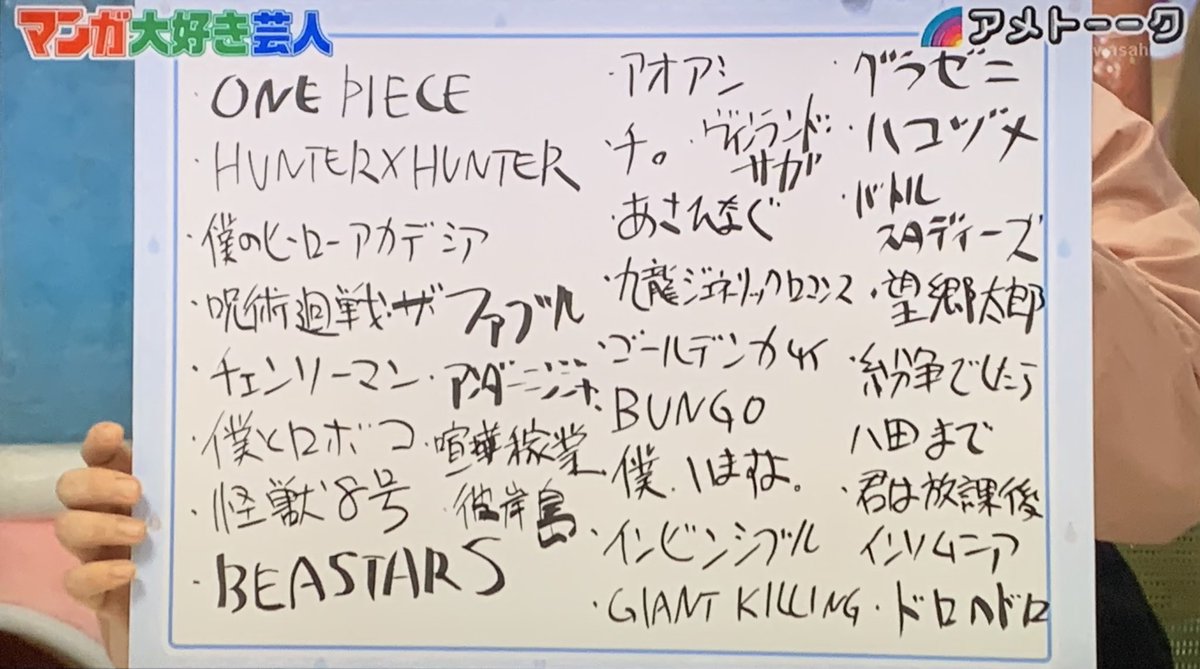 マンガ大好き芸人
アメトーーク
・ONE PIECE
・HUNTER×HUNTER
・僕のヒーローアカデミア
・呪術廻戦・ザ ファブル
・チェンソーマン・アンダーニンジャ
・僕とロボコ・喧嘩稼業
・怪獣8号・彼岸島
・BEASTARS
・アオアシ
・チ。・ヴィンランド・サガ
・あさひなぐ
・九龍ジェネリックロマンス
・ゴールデンカムイ
・BUNGO
・僕、いますよ。
・インビンシブル
・GIANT KILLING・ドロヘドロ
・グラゼニ
・ハコヅメ
・バトル
スタディーズ
・望郷太郎
・紛争でしたら
八田まで
・君は放課後
インソムニア